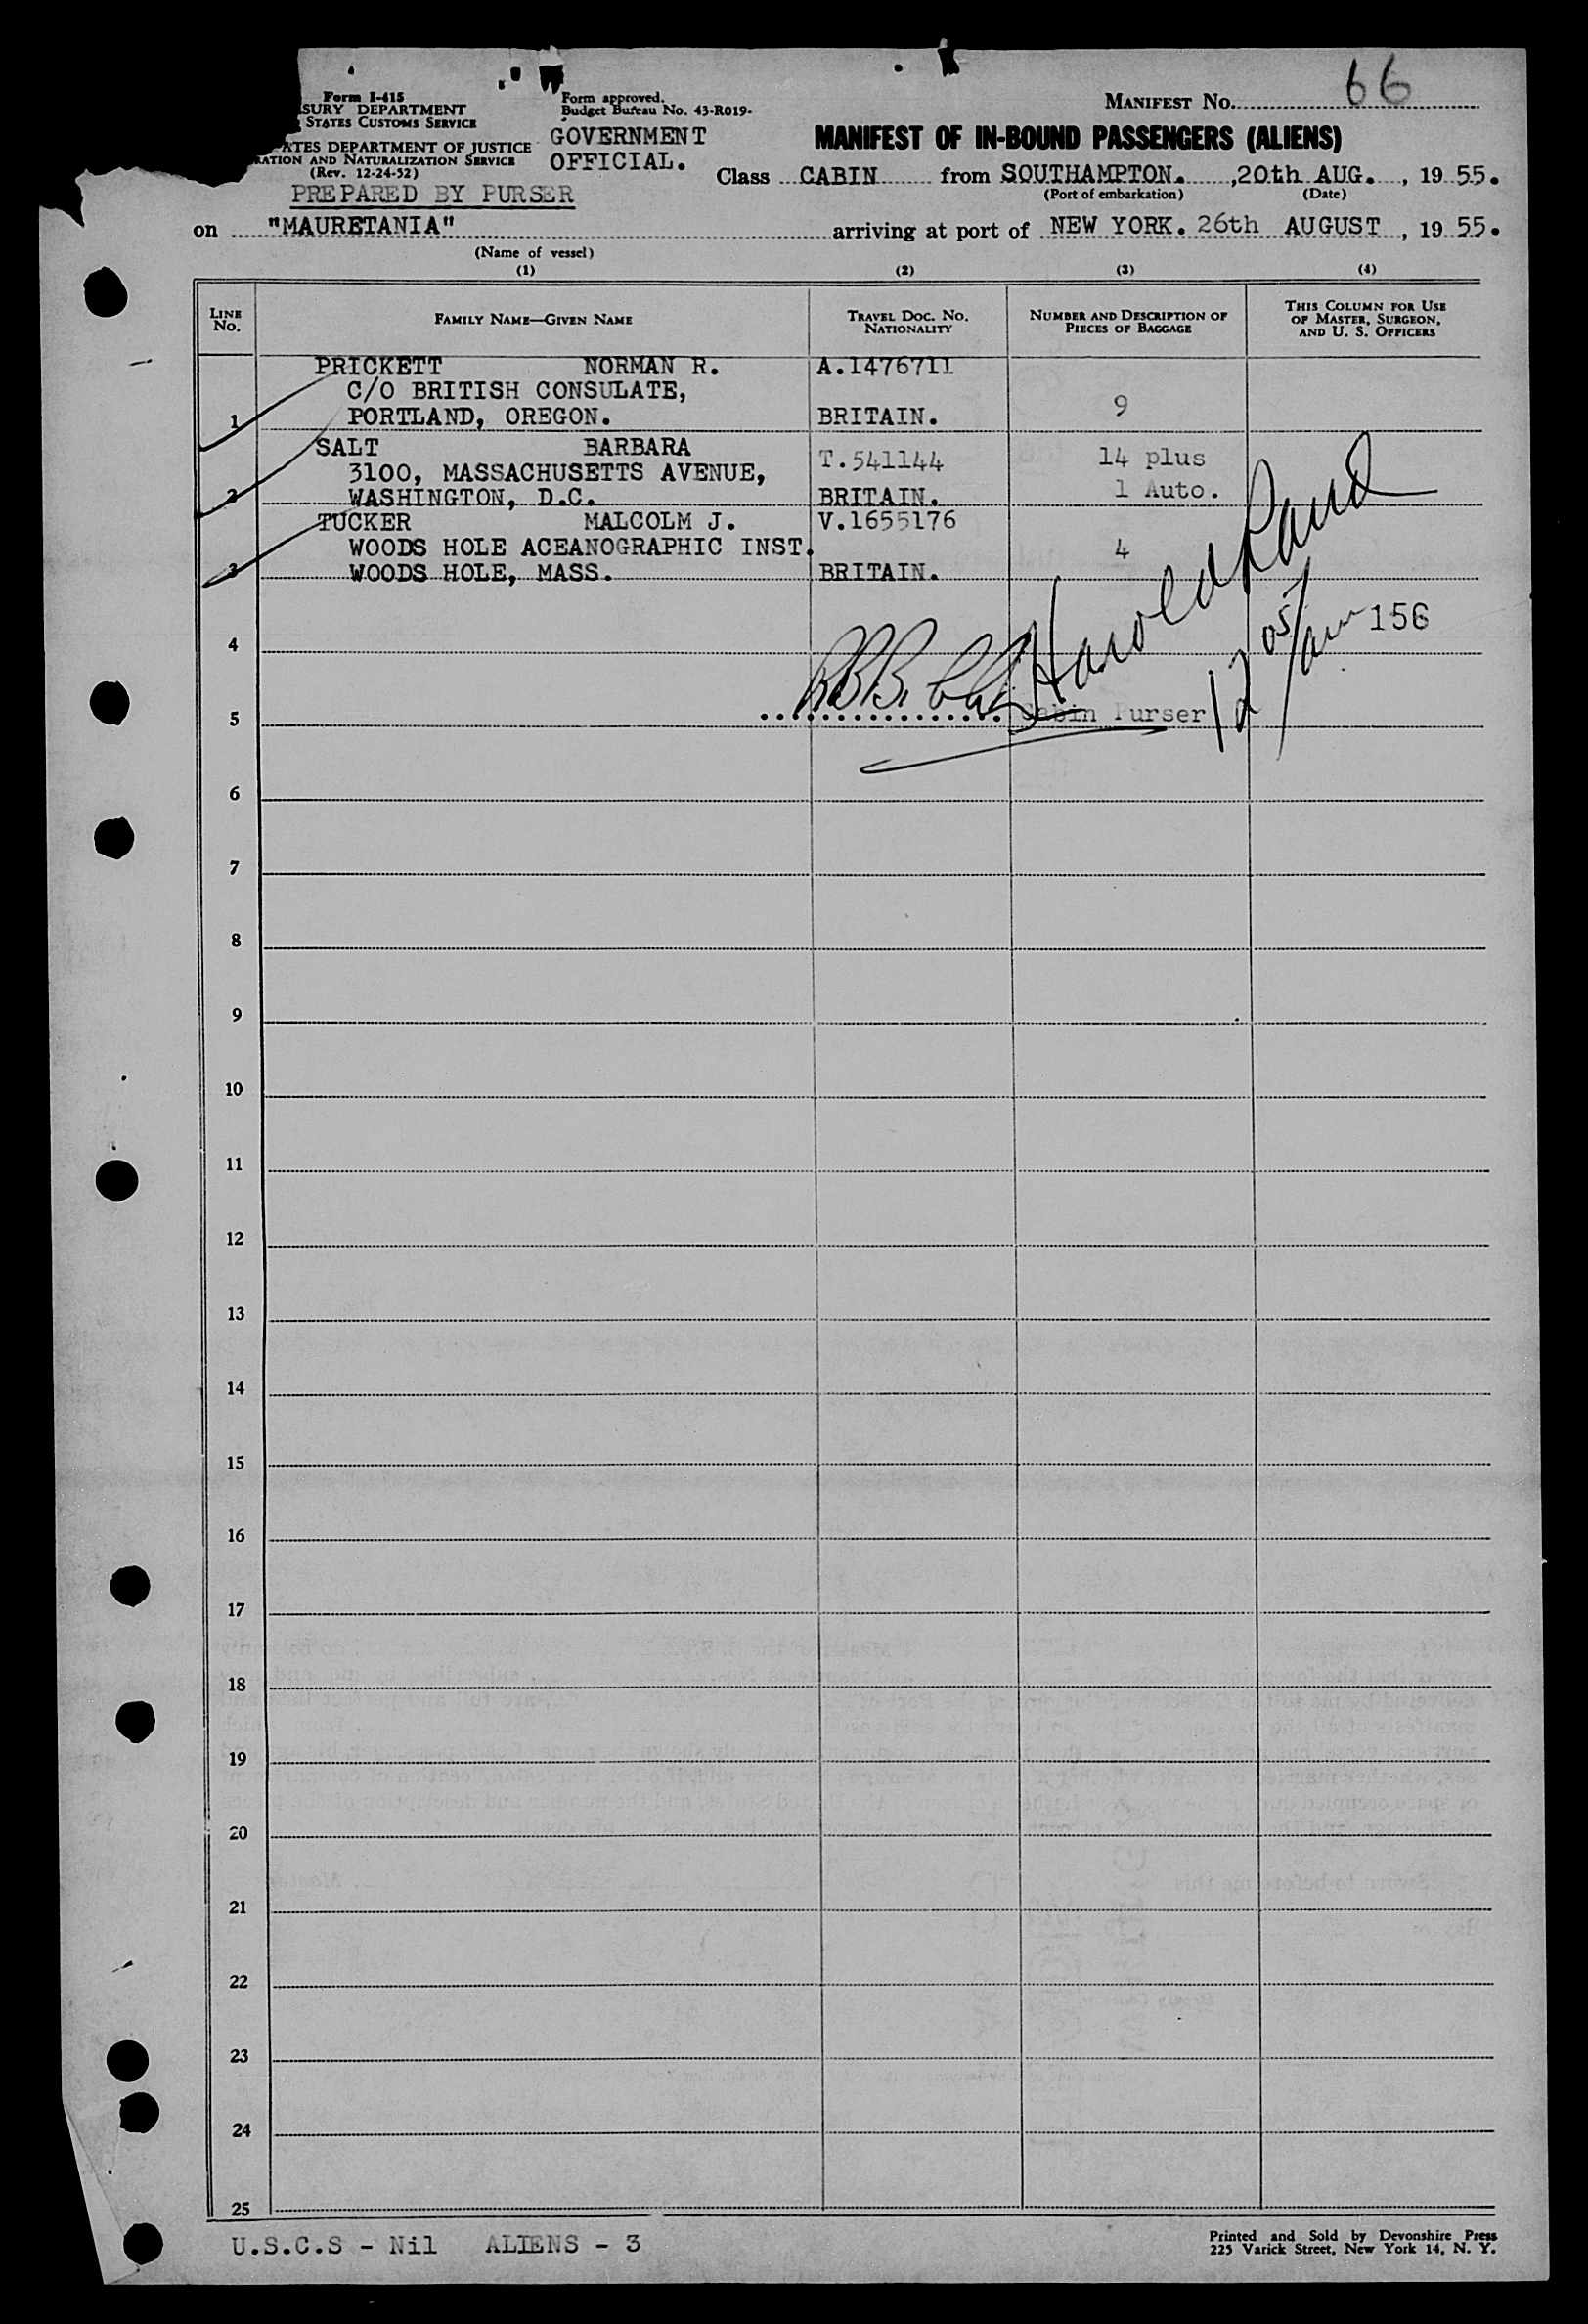 Form I-415
SURY DEPARTMENT
STATES CUSTOMS SERVICE
ATES DEPARTMENT OF JUSTICE
RATION AND NATURALIZATION SERVICE
(Rev. 12-24-52)
PREPARED BY PURSER
Form approved.
Budget Bureau No. 43-R019-
GOVERNMENT
OFFICIAL.
MANIFEST No. 66
MANIFEST OF IN-BOUND PASSENGERS (ALIENS)
Class CABIN from SOUTHAMPTON. , 20th AUG. , 19 55.
(Port of embarkation) (Date)
on "MAURETANIA" arriving at port of NEW YORK. 26th AUGUST , 19 55.
(Name of vessel)
(1) (2) (3) (4)
LINE No. FAMILY NAME—GIVEN NAME TRAVEL DOC. No. NATIONALITY NUMBER AND DESCRIPTION OF PIECES OF BAGGAGE THIS COLUMN FOR USE OF MASTER, SURGEON, AND U. S. OFFICERS
PRICKETT NORMAN R. A.1476711
C/O BRITISH CONSULATE, 9
1 PORTLAND, OREGON. BRITAIN.
SALT BARBARA T.541144 14 plus
3100, MASSACHUSETTS AVENUE,
2 WASHINGTON, D.C. BRITAIN. 1 Auto.
TUCKER MALCOLM J. V.1655176
WOODS HOLE ACEANOGRAPHIC INST. 4
3 WOODS HOLE, MASS. BRITAIN.
Harold
12 05/am 156
4
5 Cabin Purser
6
7
8
9
10
11
12
13
14
15
16
17
18
19
20
21
22
23
24
25
U.S.C.S - Nil ALIENS - 3
Printed and Sold by Devonshire Press
225 Varick Street, New York 14, N. Y.